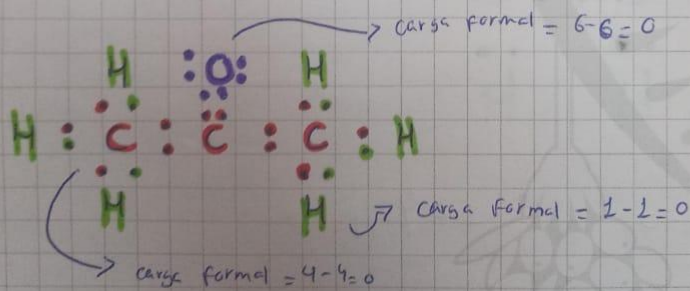 carga formal = 6-6=0
H :O: H
H : C : C : C : H
H H
carga formal = 1-1=0
carga formal = 4-4=0